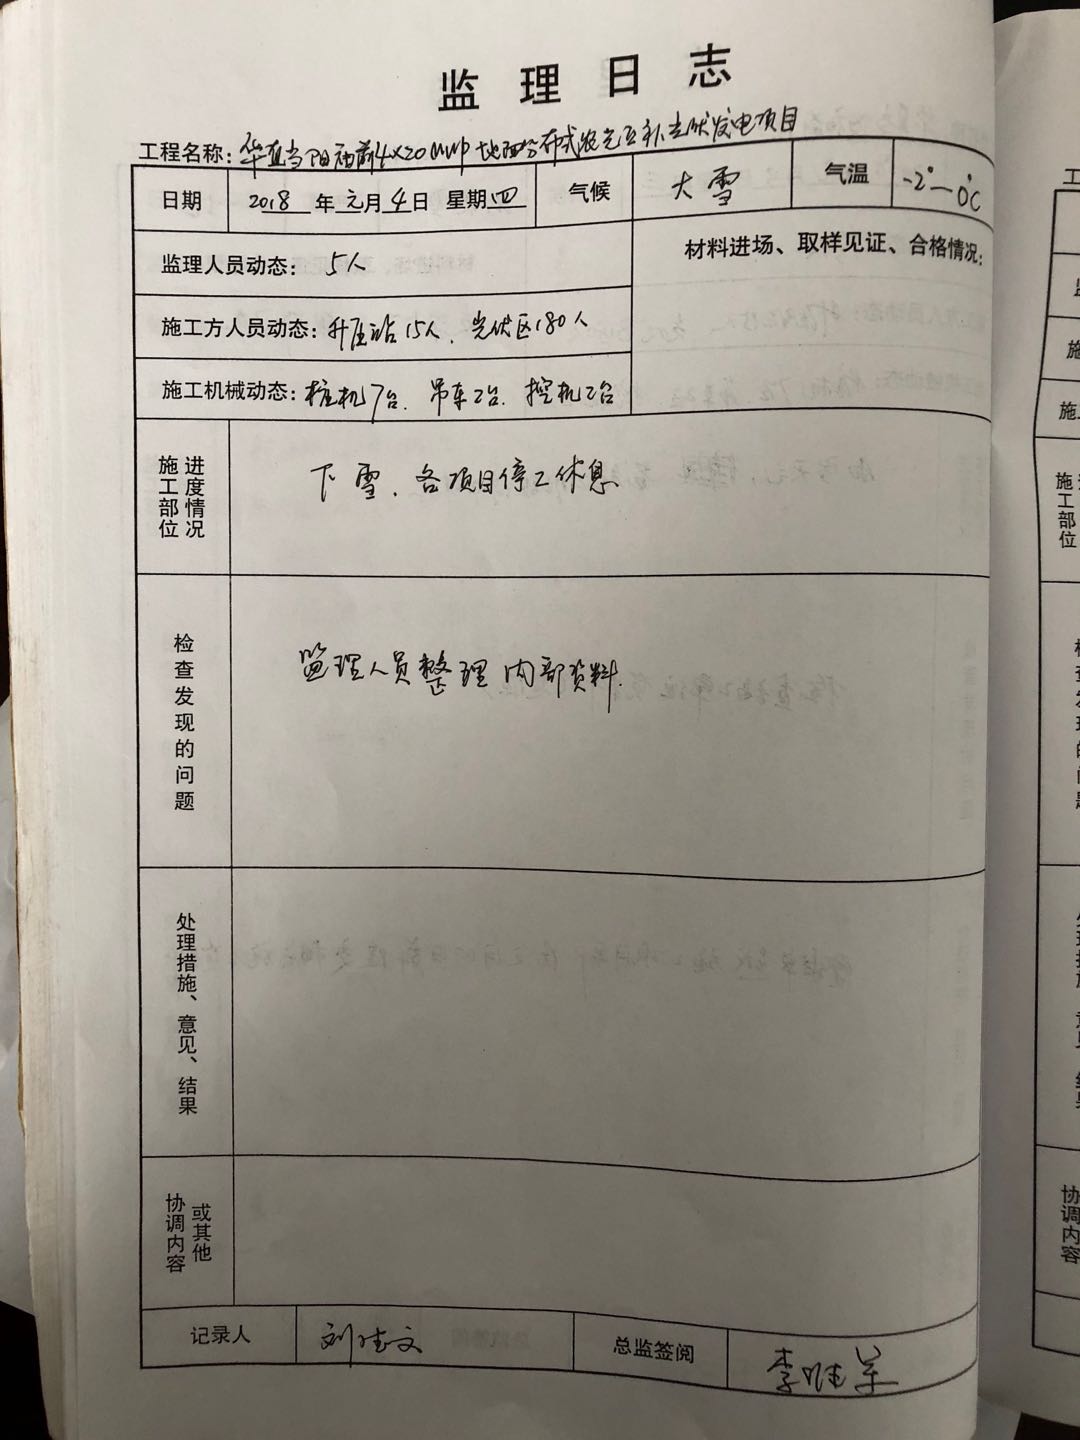 监理日志
工程名称：华 当阳 前4×20MWP地面分布式农光互补光伏发电项目
日期 2018年元月4日 星期四 气候 大雪 气温 -2°—0℃
监理人员动态：5人 材料进场、取样见证、合格情况：
施工方人员动态：升压站15人、光伏区180人
施工机械动态：桩机7台、吊车2台、挖机2台
施工部位进度情况 下雪、各项目停工休息
检查发现的问题 监理人员整理内部资料.
处理措施、意见、结果
协调内容或其他
记录人 刘 文 总监签阅 李 军